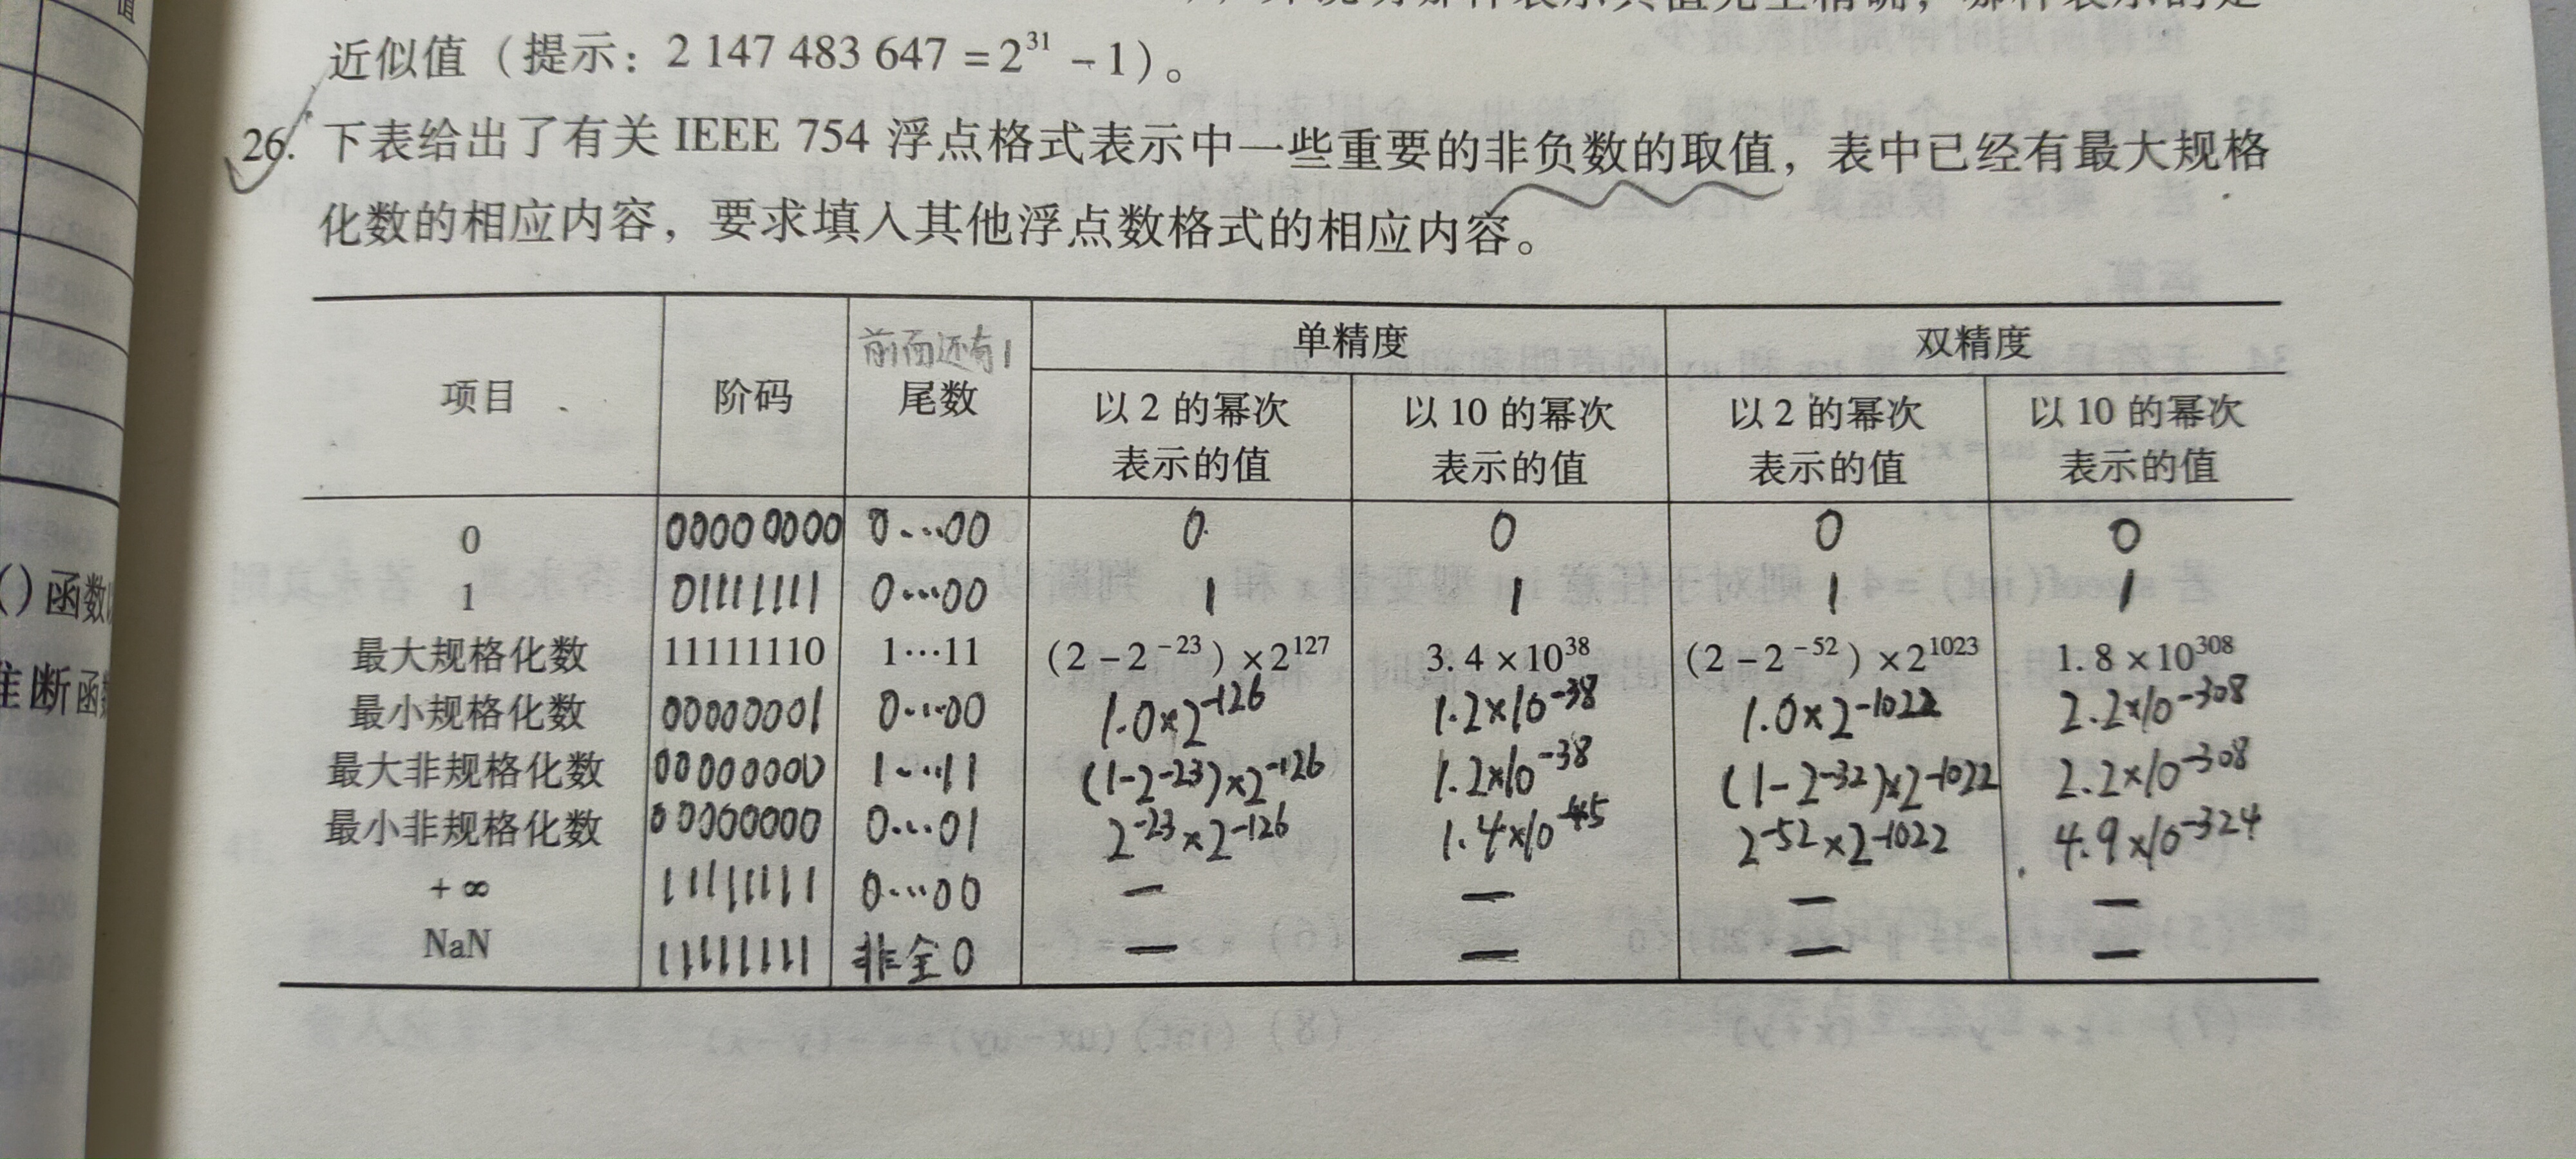 近似值（提示：2 147 483 647 = 2^31 - 1）。
26. 下表给出了有关 IEEE 754 浮点格式表示中一些重要的非负数的取值，表中已经有最大规格
化数的相应内容，要求填入其他浮点数格式的相应内容。
前面还有1
单精度 双精度
项目 阶码 尾数 以 2 的幂次 以 10 的幂次 以 2 的幂次 以 10 的幂次
表示的值 表示的值 表示的值 表示的值
0 0000 0000 0…00 0 0 0 0
1 01111111 0…00 1 1 1 1
最大规格化数 11111110 1…11 (2-2^-23)×2^127 3.4×10^38 (2-2^-52)×2^1023 1.8×10^308
最小规格化数 00000001 0…00 1.0×2^-126 1.2×10^-38 1.0×2^-1022 2.2×10^-308
最大非规格化数 00000000 1…11 (1-2^-23)×2^-126 1.2×10^-38 (1-2^-32)×2^-1022 2.2×10^-308
最小非规格化数 00000000 0…01 2^-23×2^-126 1.4×10^-45 2^-52×2^-1022 4.9×10^-324
+∞ 11111111 0…00 — — — —
NaN 11111111 非全0 — — — —
()函数
断函